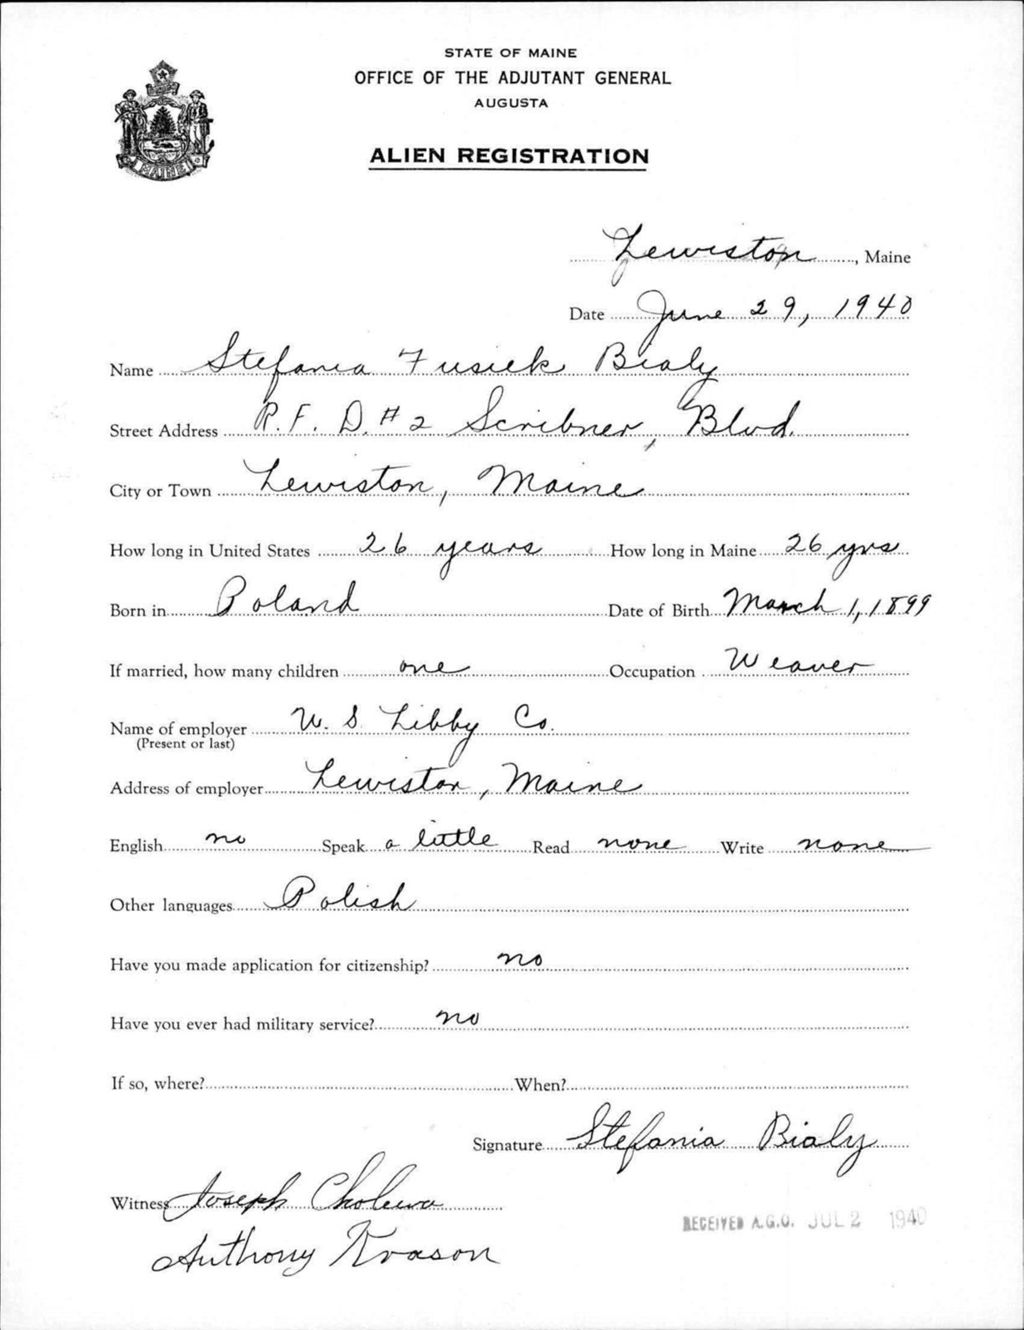 STATE OF MAINE
OFFICE OF THE ADJUTANT GENERAL
AUGUSTA
ALIEN REGISTRATION
MAINE
Lewiston, Maine
Date June 29, 1940
Name Stefania Fusiek Bialy
Street Address R.F.D.#2 Scribner, Blvd.
City or Town Lewiston, Maine
How long in United States 26 years How long in Maine 26 yrs
Born in Poland Date of Birth March 1, 1899
If married, how many children one Occupation Weaver
Name of employer W. S. Libby Co.
(Present or last)
Address of employer Lewiston, Maine
English no Speak a little Read none Write none
Other languages Polish
Have you made application for citizenship? no
Have you ever had military service? no
If so, where? When?
Signature Stefania Bialy
Witness Joseph Cholewa
Anthony Krason
RECEIVED A.G.O. JUL 2 1940